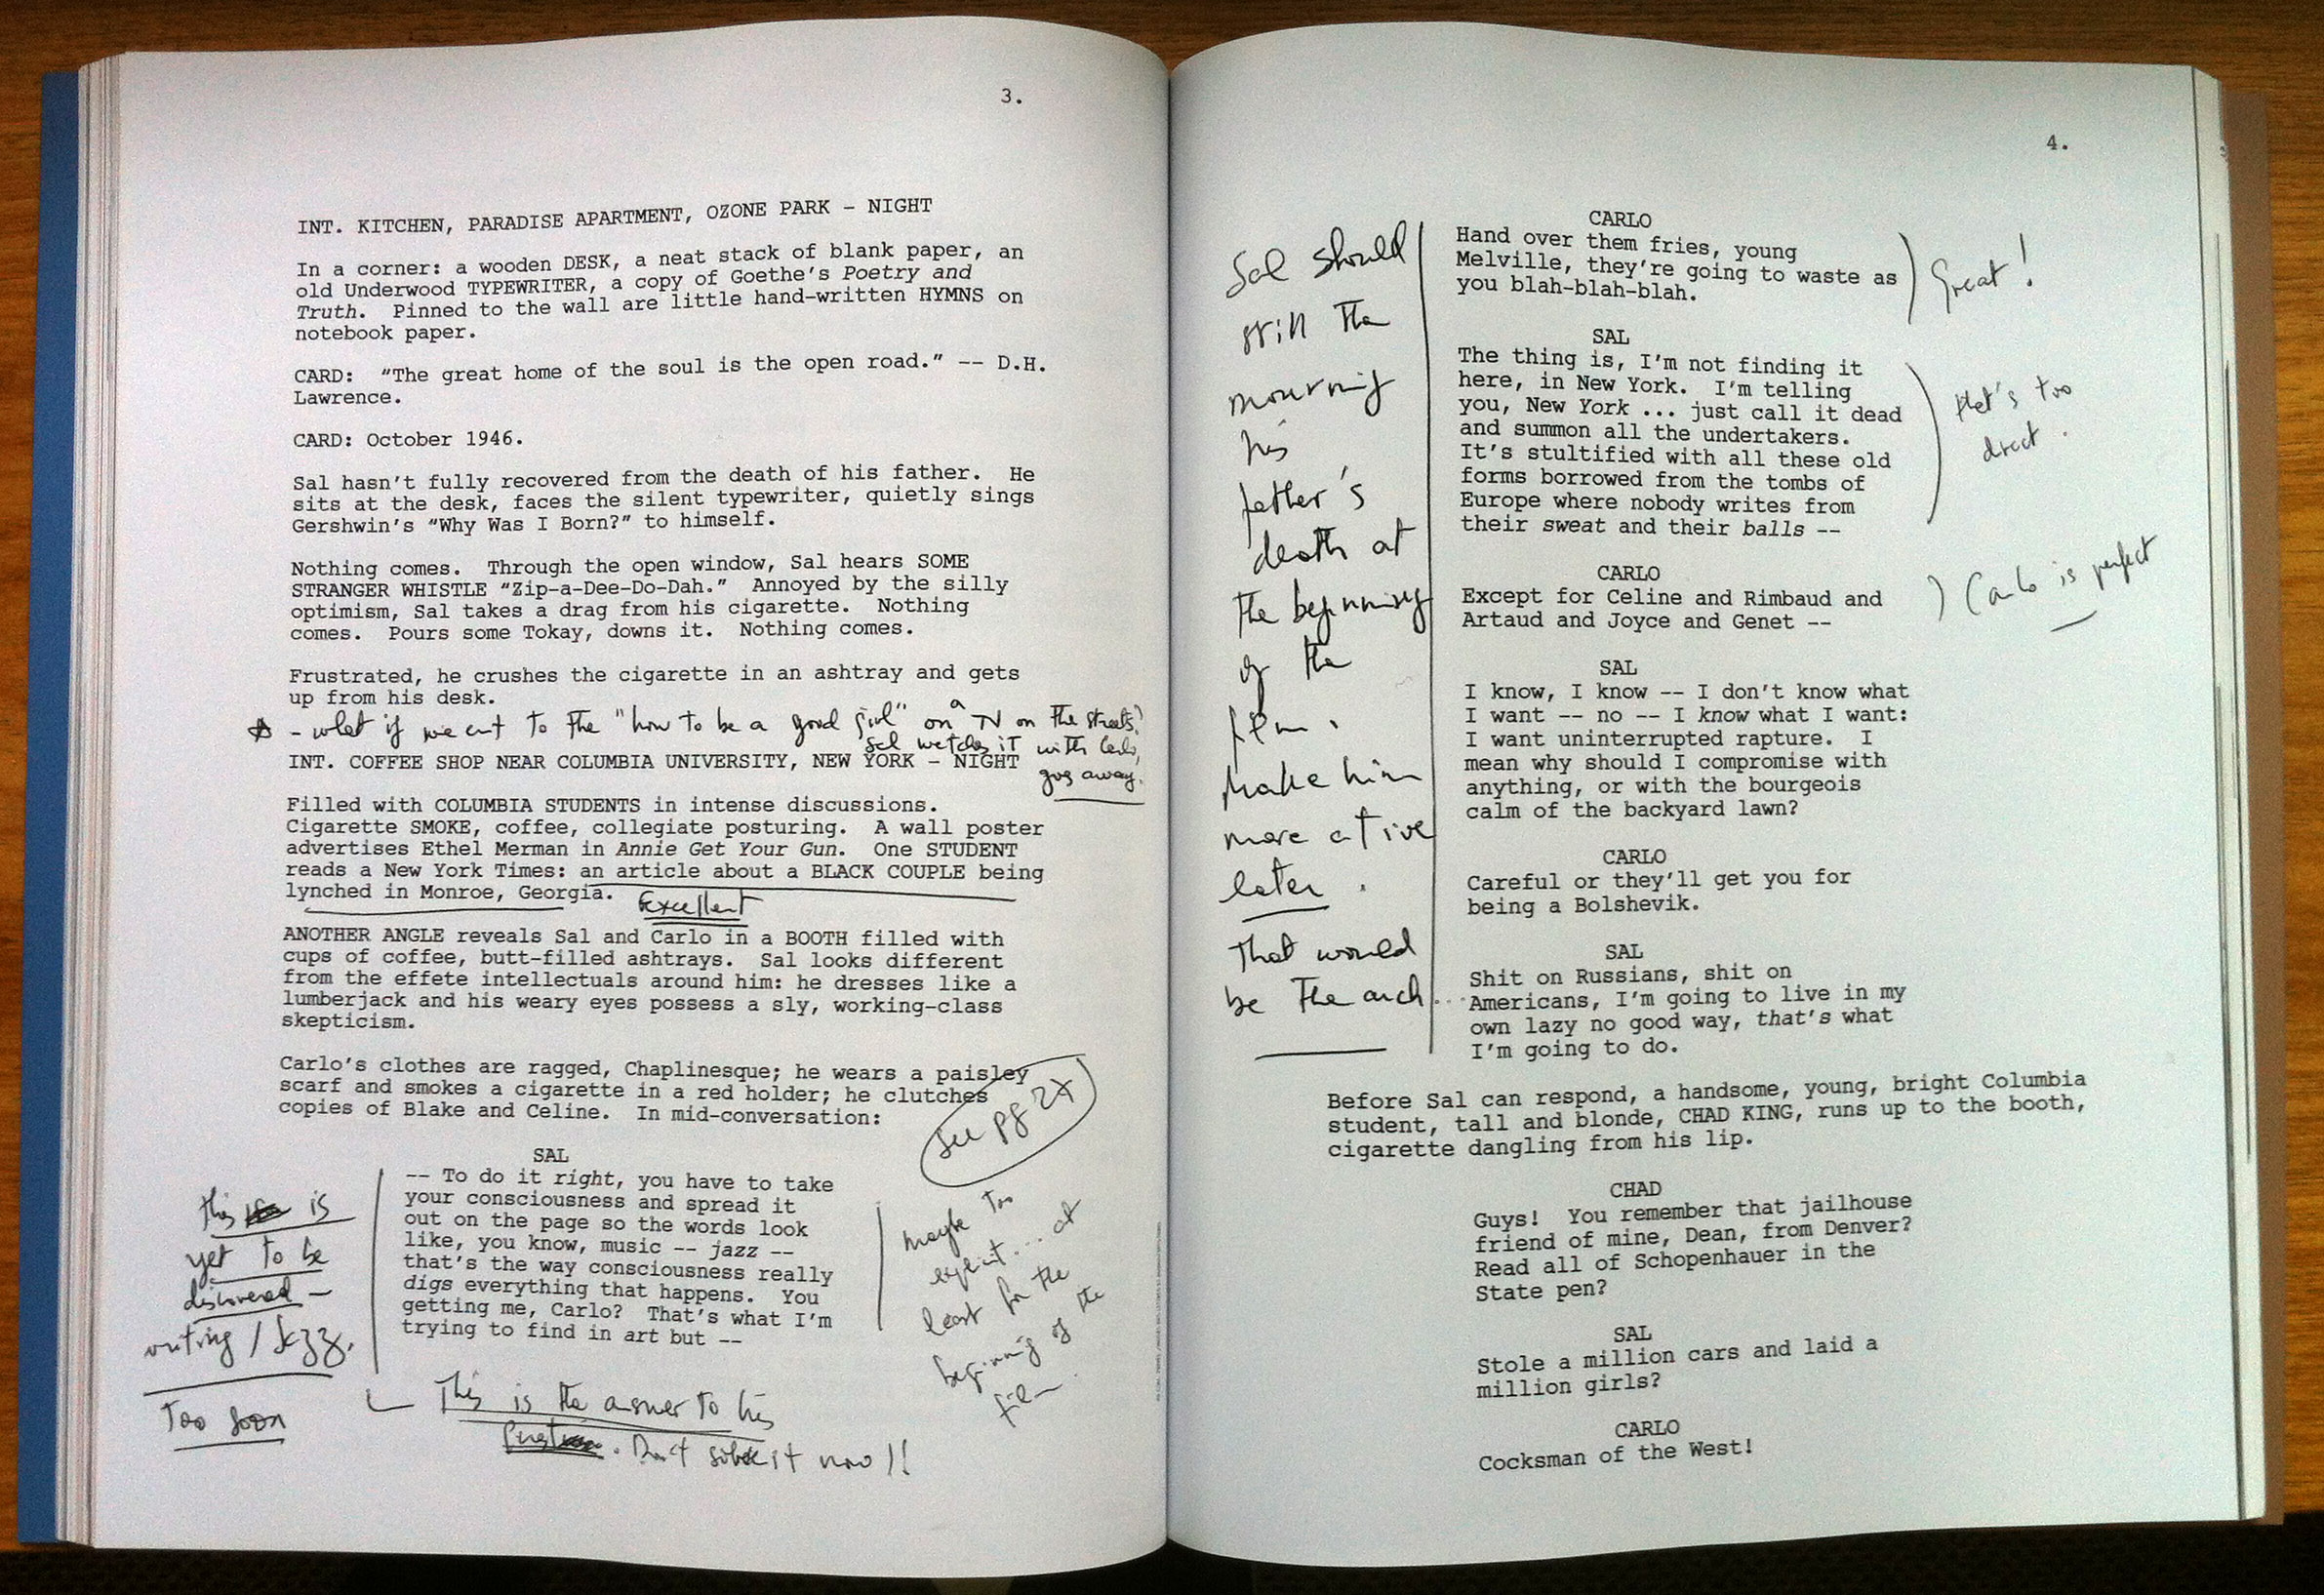 3.
INT. KITCHEN, PARADISE APARTMENT, OZONE PARK - NIGHT
In a corner: a wooden DESK, a neat stack of blank paper, an
old Underwood TYPEWRITER, a copy of Goethe's Poetry and
Truth. Pinned to the wall are little hand-written HYMNS on
notebook paper.
CARD: "The great home of the soul is the open road." -- D.H.
Lawrence.
CARD: October 1946.
Sal hasn't fully recovered from the death of his father. He
sits at the desk, faces the silent typewriter, quietly sings
Gershwin's "Why Was I Born?" to himself.
Nothing comes. Through the open window, Sal hears SOME
STRANGER WHISTLE "Zip-a-Dee-Do-Dah." Annoyed by the silly
optimism, Sal takes a drag from his cigarette. Nothing
comes. Pours some Tokay, downs it. Nothing comes.
Frustrated, he crushes the cigarette in an ashtray and gets
up from his desk.
- what if we cut to the "how to be a good girl" on a TV on the streets?
Sal watches it with Carlo,
goes away.
INT. COFFEE SHOP NEAR COLUMBIA UNIVERSITY, NEW YORK - NIGHT
Filled with COLUMBIA STUDENTS in intense discussions.
Cigarette SMOKE, coffee, collegiate posturing. A wall poster
advertises Ethel Merman in Annie Get Your Gun. One STUDENT
reads a New York Times: an article about a BLACK COUPLE being
lynched in Monroe, Georgia.
Excellent
ANOTHER ANGLE reveals Sal and Carlo in a BOOTH filled with
cups of coffee, butt-filled ashtrays. Sal looks different
from the effete intellectuals around him: he dresses like a
lumberjack and his weary eyes possess a sly, working-class
skepticism.
Carlo's clothes are ragged, Chaplinesque; he wears a paisley
scarf and smokes a cigarette in a red holder; he clutches
copies of Blake and Celine. In mid-conversation:
see pg 2X
SAL
-- To do it right, you have to take
your consciousness and spread it
out on the page so the words look
like, you know, music -- jazz --
that's the way consciousness really
digs everything that happens. You
getting me, Carlo? That's what I'm
trying to find in art but --
this is
yet to be
discovered -
writing / Jazz.
Too soon
maybe too
explicit... at
least for the
beginning of the
film
This is the answer to his
. Don't solve it now!!
4.
CARLO
Hand over them fries, young
Melville, they're going to waste as
you blah-blah-blah.
Great!
SAL
The thing is, I'm not finding it
here, in New York. I'm telling
you, New York ... just call it dead
and summon all the undertakers.
It's stultified with all these old
forms borrowed from the tombs of
Europe where nobody writes from
their sweat and their balls --
that's too
direct.
CARLO
Except for Celine and Rimbaud and
Artaud and Joyce and Genet --
Carlo is perfect
SAL
I know, I know -- I don't know what
I want -- no -- I know what I want:
I want uninterrupted rapture. I
mean why should I compromise with
anything, or with the bourgeois
calm of the backyard lawn?
CARLO
Careful or they'll get you for
being a Bolshevik.
SAL
Shit on Russians, shit on
Americans, I'm going to live in my
own lazy no good way, that's what
I'm going to do.
Sal should
still the
mourning
his
father's
death at
the beginning
of the
film.
Make him
more active
later.
That would
be the arch...
Before Sal can respond, a handsome, young, bright Columbia
student, tall and blonde, CHAD KING, runs up to the booth,
cigarette dangling from his lip.
CHAD
Guys! You remember that jailhouse
friend of mine, Dean, from Denver?
Read all of Schopenhauer in the
State pen?
SAL
Stole a million cars and laid a
million girls?
CARLO
Cocksman of the West!